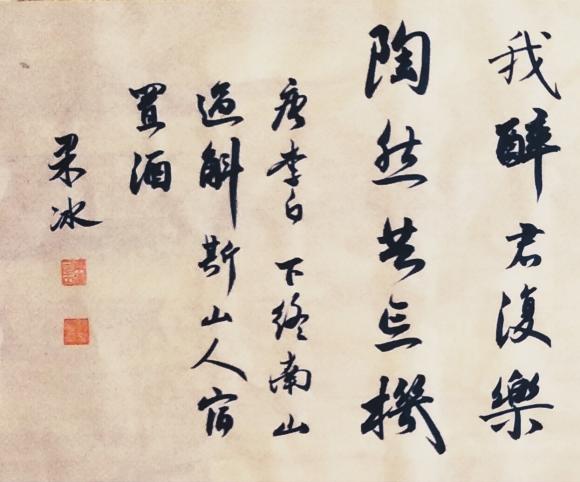 我醉君復樂
陶然共忘機
唐李白下終南山
過斛斯山人宿
置酒
冰